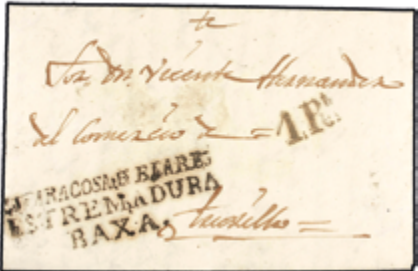 te
Sor. Dn. Vicente Hernandez
del Comercio de =
1.R.
ESTREMADURA
BAXA.
Truxillo =